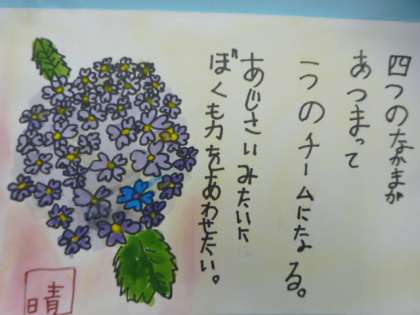 四つのなかまが
あつまって
一つのチームになる。
あじさいみたいに
ぼくも力をあわせたい。
晴